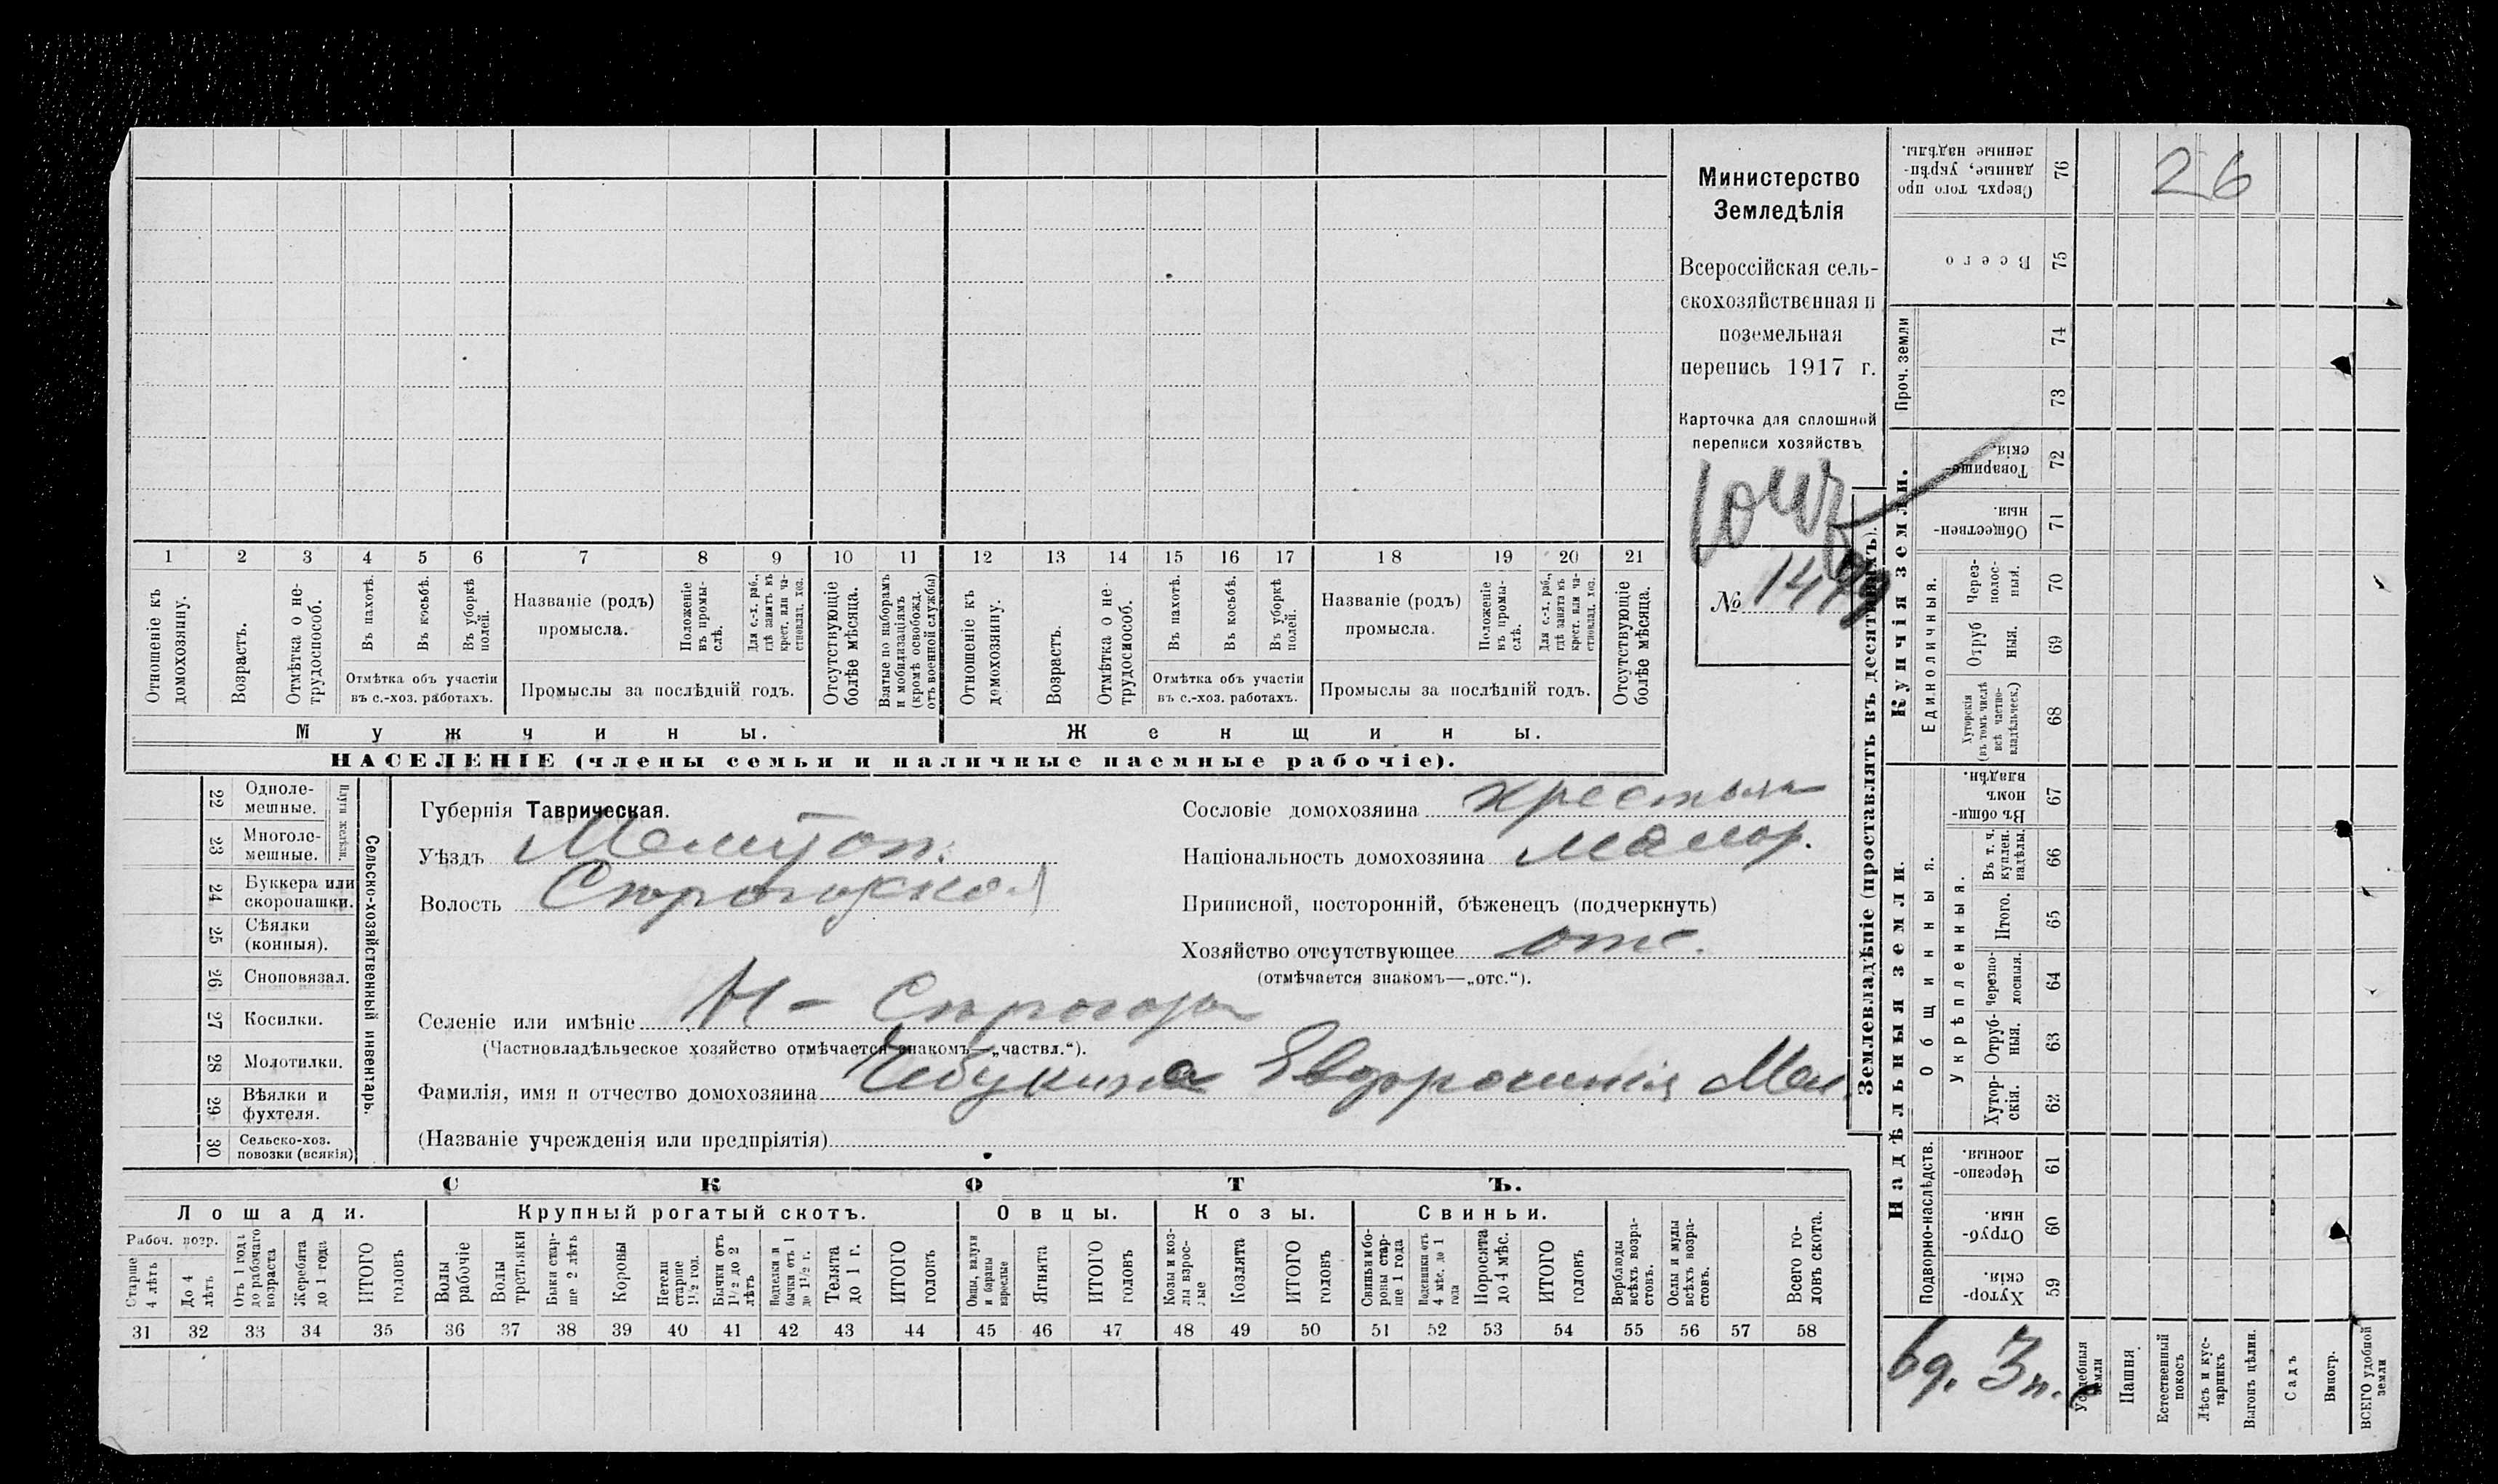 Министерство
Земледѣлія
Всероссійская сель-
скохозяйственная и
поземельная
перепись 1917 г.
Карточка для сплошной
переписи хозяйствъ
№ 1479
1 2 3 4 5 6 7 8 9 10 11 12 13 14 15 16 17 18 19 20 21
Отношеніе къ домохозяину.
Возрастъ.
Отмѣтка о не-трудоспособ.
Въ пахотѣ.
Въ косьбѣ.
Въ уборкѣ полей.
Отмѣтка объ участіи
въ с.-хоз. работахъ.
Названіе (родъ)
промысла.
Положеніе въ промы-слѣ.
Для с.-х. раб., гдѣ занятъ въ крест. или ча-стновлад. хоз.
Промыслы за послѣдній годъ.
Отсутствующіе болѣе мѣсяца.
Взятые по наборамъ и мобилизаціямъ (кромѣ освобожд. отъ военной службы)
Отношеніе къ домохозяину.
Возрастъ.
Отмѣтка о не-трудоспособ.
Въ пахотѣ.
Въ косьбѣ.
Въ уборкѣ полей.
Отмѣтка объ участіи
въ с.-хоз. работахъ.
Названіе (родъ)
промысла.
Положеніе въ промы-слѣ.
Для с.-х. раб., гдѣ занята въ крест. или ча-стновлад. хоз.
Промыслы за послѣдній годъ.
Отсутствующіе болѣе мѣсяца.
Мужчины.
Женщины.
НАСЕЛЕНІЕ (члены семьи и наличные наемные рабочіе).
Сельско-хозяйственный инвентарь.
Плуги желѣзн.
22 Одноле-мешные.
23 Многоле-мешные.
24 Буккера или скоропашки.
25 Сѣялки (конныя).
26 Сноповязал.
27 Косилки.
28 Молотилки.
29 Вѣялки и фухтеля.
30 Сельско-хоз. повозки (всякія)
Губернія Таврическая.
Уѣздъ Мелитоп.
Волость
Селеніе или имѣніе
(Частновладѣльческое хозяйство отмѣчается знакомъ—„частвл.“).
Фамилія, имя и отчество домохозяина
(Названіе учрежденія или предпріятія)
Сословіе домохозяина крестьян
Національность домохозяина малор.
Приписной, посторонній, бѣженецъ (подчеркнуть)
Хозяйство отсутствующее отс.
(отмѣчается знакомъ—„отс.“).
СКОТЪ.
Лошади.
Крупный рогатый скотъ.
Овцы.
Козы.
Свиньи.
Рабоч. возр.
Старше 4 лѣтъ
До 4 лѣтъ
Отъ 1 года до рабочаго возраста
Жеребята до 1 года
ИТОГО головъ
Волы рабочіе
Волы третьяки
Быки стар-ше 2 лѣтъ
Коровы
Нетели старше 1½ год.
Бычки отъ 1½ до 2 лѣтъ
Подтелки и бычки отъ 1 до 1½ г.
Телята до 1 г.
ИТОГО головъ
Овцы, валухи и бараны взрослые
Ягнята
ИТОГО головъ
Козы и коз-лы взрос-лые
Козлята
ИТОГО головъ
Свиньи и бо-ровы стар-ше 1 года
Подсвинки отъ 4 мѣс. до 1 года
Поросята до 4 мѣс.
ИТОГО головъ
Верблюды всѣхъ возра-стовъ.
Ослы и мулы всѣхъ возра-стовъ.
Всего го-ловъ скота.
31 32 33 34 35 36 37 38 39 40 41 42 43 44 45 46 47 48 49 50 51 52 53 54 55 56 57 58
Землевладѣніе (проставлять въ десятинахъ).
26
Сверхъ того про данные, укрѣп-ленные надѣлы. 76
Всего 75
Проч. земли
74
73
Купчія земли.
Товарище-скія. 72
Обществен-ныя. 71
Единоличныя.
Через-полос-ныя. 70
Отруб ныя. 69
Хуторскія (въ томъ числѣ всѣ частно-владѣльческ.) 68
Надѣльныя земли.
Общинныя.
Въ общи-номъ владѣн. 67
Укрѣпленныя.
Въ т. ч. куплен. надѣлы. 66
Итого. 65
Черезпо-лосныя. 64
Отруб-ныя. 63
Хутор-скія. 62
Подворно-наслѣдств.
Черезпо-лосныя. 61
Отруб-ныя. 60
Хутор-скія. 59
Усадебныя земли
Пашня.
Естественный покосъ
Лѣсъ и кус-тарникъ
Выгонъ цѣлин.
Садъ
Виногр.
ВСЕГО удобной земли